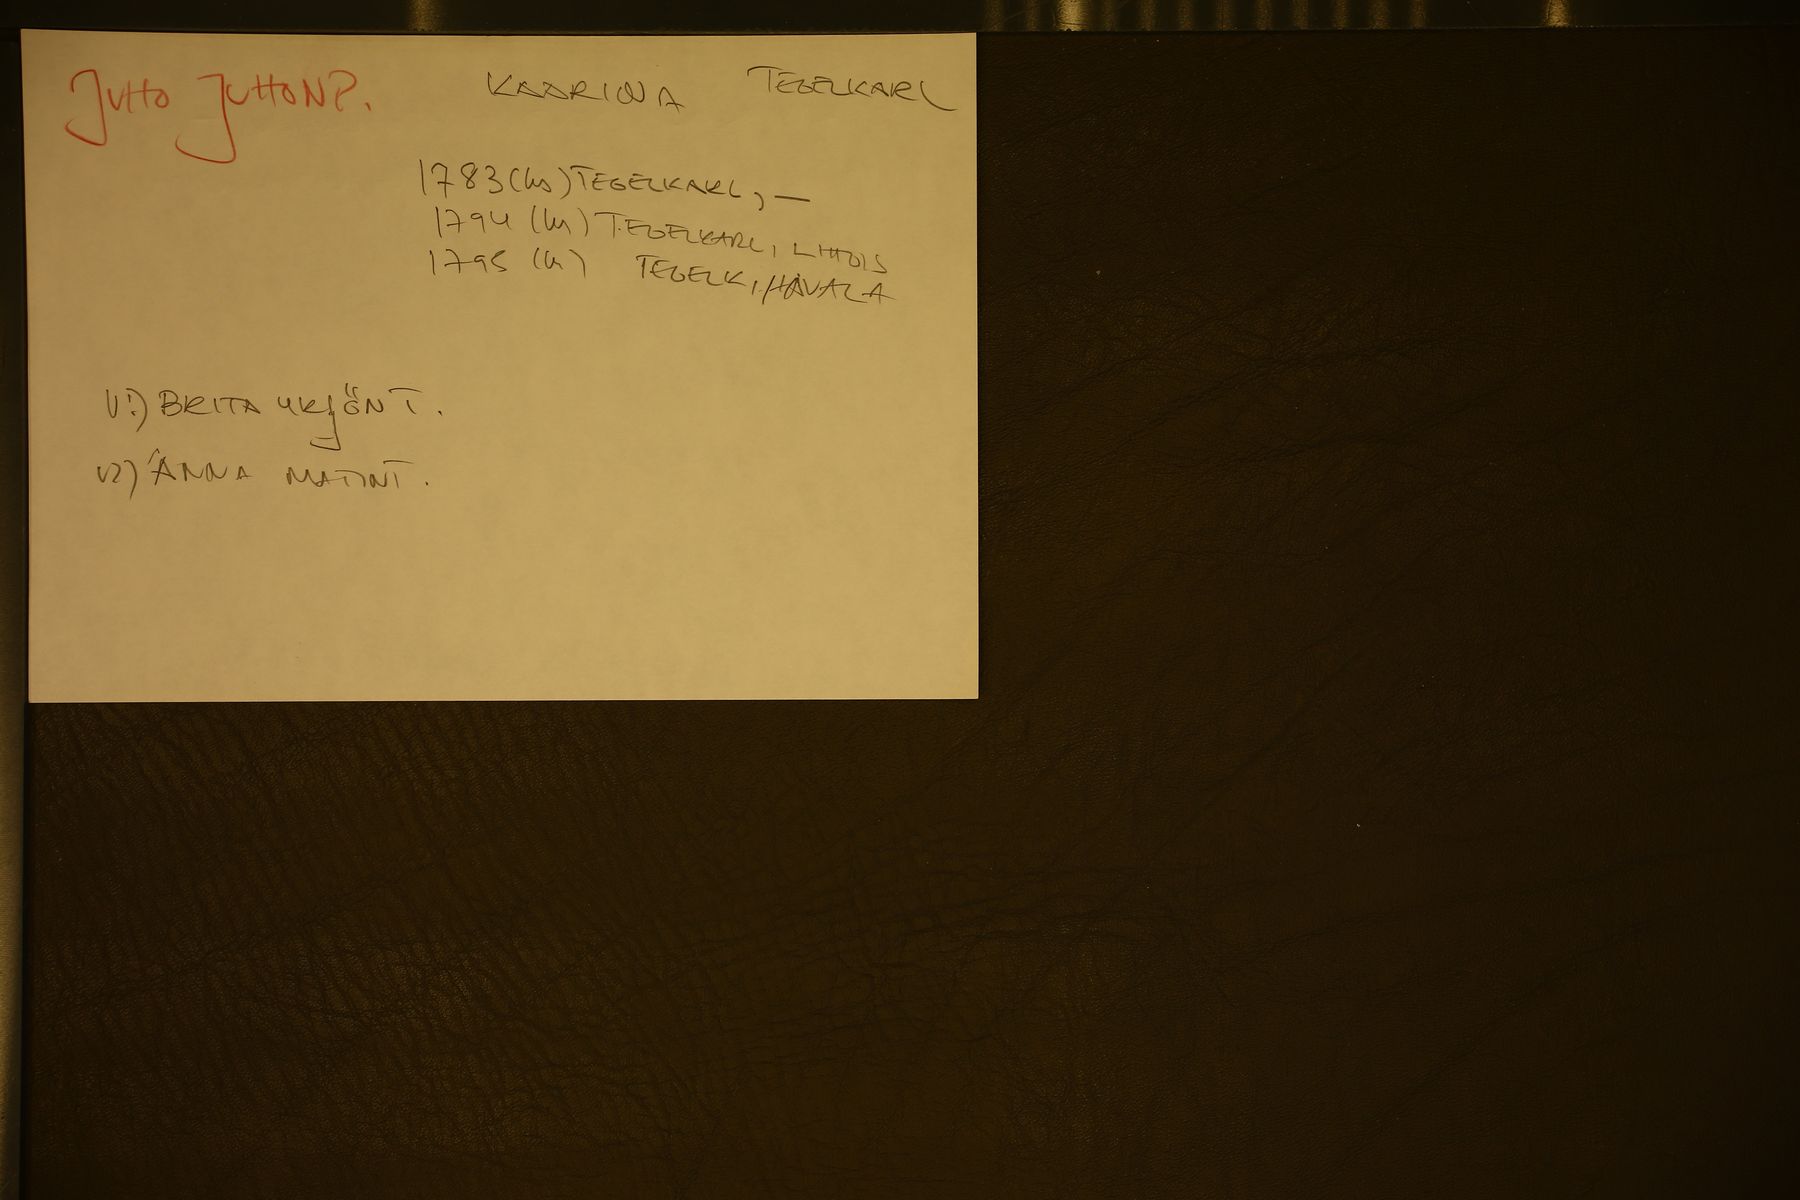 JUTTO JUTTONP. KAARINA TEGELKARL
1783 (hs) TEGELKARL, —
1794 (hs) TEGELKARL, LITTOIS
1795 (hs) TEGELK, HAVALA
V1) BRITA YRJÖNT.
V2) ANNA MATINT.